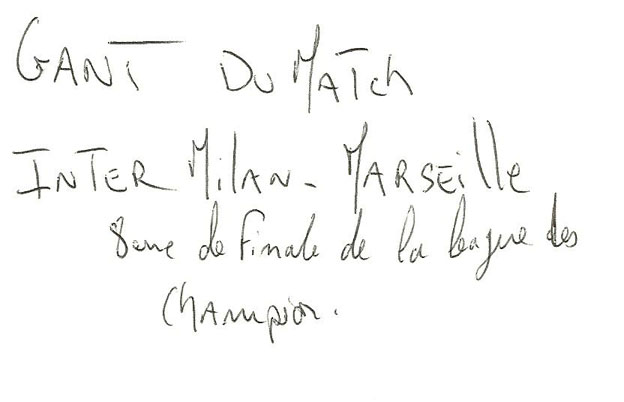 GANT DU MATCH
INTER MilAN - MARSEille
8eme de finale de la league des
CHAmpion.